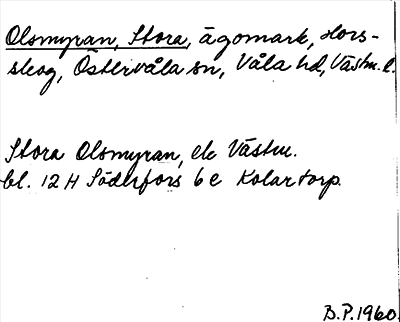 Olsmyran, Stora, ägomark, Hors-
skog, Östervåla sn, Våla hd, Västm. l.
Stora Olsmyran, ek Västm.
bl. 12 H Söderfors 6 e Kolartorp.
B.P. 1960.